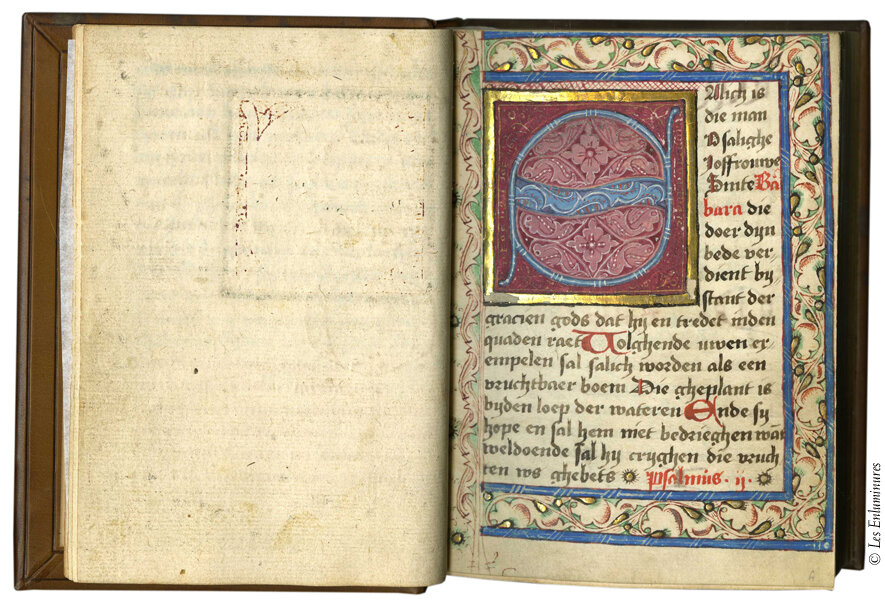 Alich is
die man
O salighe
Joffrouwe
Sinte Bar
bara die
doer dyn
bede ver
dient by
stant der
gracien gods dat hy en tredet inden
quaden raet Volghende uwen ex
empelen sal salich worden als een
vruchtbaer boem Die gheplant is
byden loep der wateren Ende sy
hope en sal hem niet bedrieghen want
weldoende sal hy cryghen die vruch
ten ws ghebets Psalmus · ii ·
© Les Enluminures